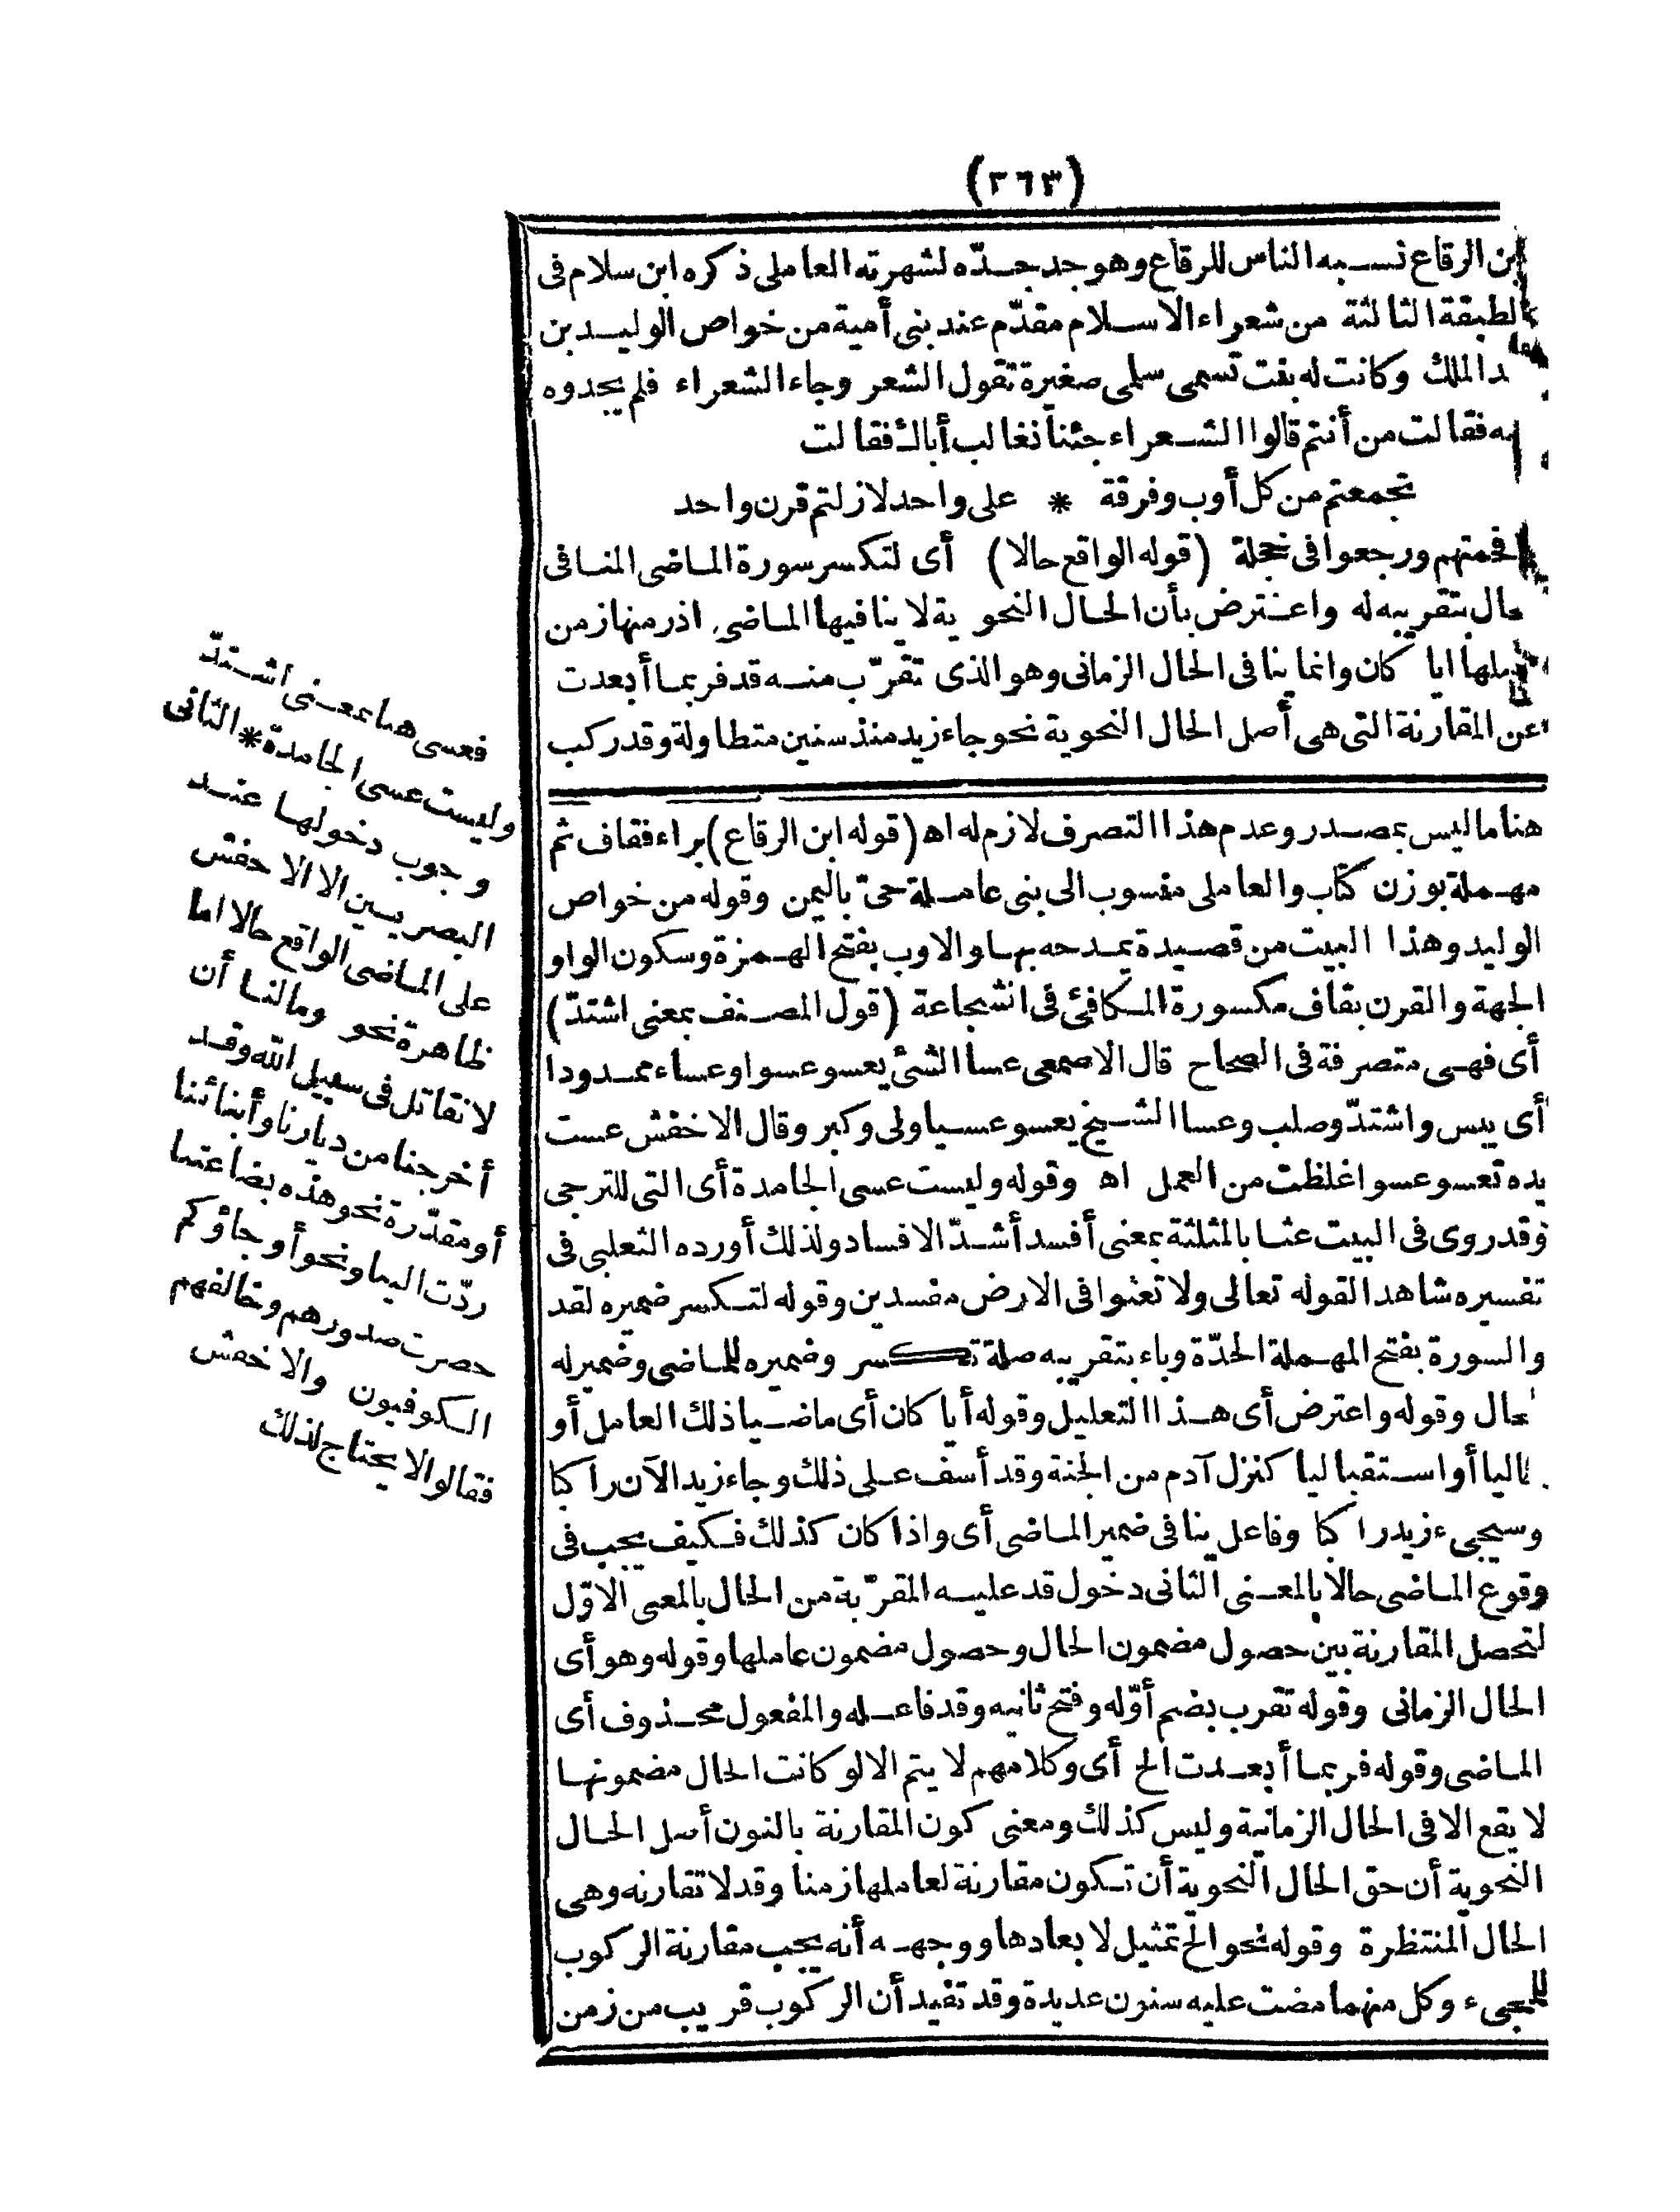 (٢٦٣)
ابن الرقاع نسبه الناس للرقاع وهو جد جدّه لشهرته العاملى ذكره ابن سلام فى
الطبقة الثالثة من شعراء الاسلام مقدّم عند بنى أمية من خواص الوليد بن
عبد الملك وكانت له بنت تسمى سلمى صغيرة تقول الشعر وجاء الشعراء فلم يجدوه
فقالت من أنتم قالوا الشعراء جئنا نغالب أباك فقالت
تجمعتم من كل أوب وفرقة * على واحد لازلتم قرن واحد
فأفحمتهم ورجعوا فى خجلة (قوله الواقع حالا) أى لتكسر سورة الماضى المنافى
للحال بتقريبه له واعترض بأن الحال النحوية لا ينافيها الماضى اذ زمنها زمن
عاملها ايا كان وانما ينافى الحال الزمانى وهو الذى تقرّب منه قد فربما أبعدت
عن المقارنة التى هى أصل الحال النحوية نحو جاء زيد منذ سنين متطاولة وقد ركب
هنا ما ليس بمصدر وعدم هذا التصرف لازم له اه (قوله ابن الرقاع) براء فقاف ثم
مهملة بوزن كتاب والعاملى منسوب الى بنى عاملة حىّ باليمن وقوله من خواص
الوليد وهذا البيت من قصيدة يمدحه بها والاوب بفتح الهمزة وسكون الواو
الجهة والقرن بقاف مكسورة المكافئ فى الشجاعة (قول المصنف بمعنى اشتدّ)
أى فهى متصرفة فى الصحاح قال الاصمعى عسا الشئ يعسو عسوا وعساء ممدودا
أى يبس واشتدّ وصلب وعسا الشيخ يعسو عسيا ولى وكبر وقال الاخفش عست
يده تعسو عسوا غلظت من العمل اه وقوله وليست عسى الجامدة أى التى للترجى
وقد روى فى البيت عثا بالمثلثة بمعنى أفسد أشدّ الافساد ولذلك أورده الثعلبى فى
تفسيره شاهدا لقوله تعالى ولا تعثوا فى الارض مفسدين وقوله لتكسر ضميره لقد
والسورة بفتح المهملة الحدّة وباء بتقريبه صلة تكسر وضميره للماضى وضمير له
للحال وقوله واعترض أى هذا التعليل وقوله أيا كان أى ماضيا ذلك العامل أو
حاليا أو استقباليا كنزل آدم من الجنة وقد أسف على ذلك وجاء زيد الآن راكبا
وسيجىء زيد راكبا وفاعل ينافى ضمير الماضى أى واذا كان كذلك فكيف يجب فى
وقوع الماضى حالا بالمعنى الثانى دخول قد عليه المقرّبة من الحال بالمعنى الاوّل
لتحصل المقارنة بين حصول مضمون الحال وحصول مضمون عاملها وقوله وهو أى
الحال الزمانى وقوله تقرب بضم أوّله وفتح ثانيه وقد فاعله والمفعول محذوف أى
الماضى وقوله فربما أبعدت الخ أى وكلامهم لا يتم الا لو كانت الحال مضمونها
لا يقع الا فى الحال الزمانية وليس كذلك ومعنى كون المقارنة بالنون أصل الحال
النحوية أن حق الحال النحوية أن تكون مقارنة لعاملها زمنا وقد لا تقارنه وهى
الحال المنتظرة وقوله نحو الخ تمثيل لابعادها ووجهه أنه يجب مقارنة الركوب
للمجىء وكل منهما مضت عليه سنون عديدة وقد تفيد أن الركوب قريب من زمن
فعسى هنا بمعنى اشتدّ
وليست عسى الجامدة * الثانى
وجوب دخولها عند
البصريين الا الاخفش
على الماضى الواقع حالا اما
ظاهرة نحو ومالنا أن
لا نقاتل فى سبيل الله وقد
أخرجنا من ديارنا وأبنائنا
أو مقدّرة نحو هذه بضاعتنا
ردّت الينا ونحو أو جاؤكم
حصرت صدورهم وخالفهم
الكوفيون والاخفش
فقالوا لا يحتاج لذلك